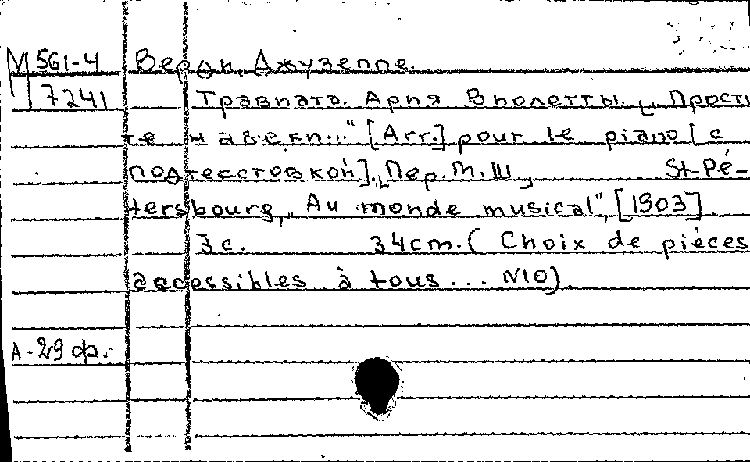 М 561-4 Верди, Джузеппе.
7241 Травиата. Ария Виолетты „Прости
те навеки..." [Arr.] pour le piano [с
подтекстовкой], Пер. М. Ш. St-Pé-
tersbourg, „Au monde musical", [1903]
3 с. 34 cm. (Choix de pièces
accessibles à tous... N10).
А-29 ф.